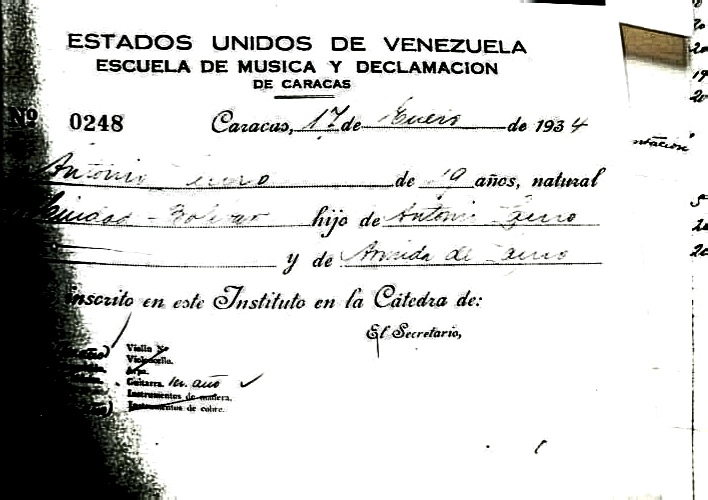 ESTADOS UNIDOS DE VENEZUELA
ESCUELA DE MUSICA Y DECLAMACION
DE CARACAS
Nº 0248 Caracas, 17 de Enero de 1934
Antonio de 19 años, natural
Ciudad - Bolivar hijo de Antonio Lauro
y de Armida de Lauro
inscrito en este Instituto en la Cátedra de:
El Secretario,
Violin
Violoncello.
Arpa.
Guitarra. 1er. año ✓
Instrumentos de madera.
Instrumentos de cobre.